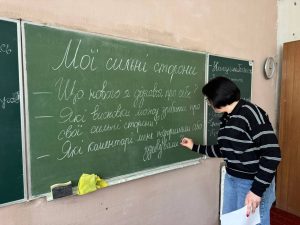 Мої сильні сторони
— Що нового я дізнався про себе?
— Які висновки можу зробити про
свої сильні сторони?
— Які коментарі мене надихнули або
здивували